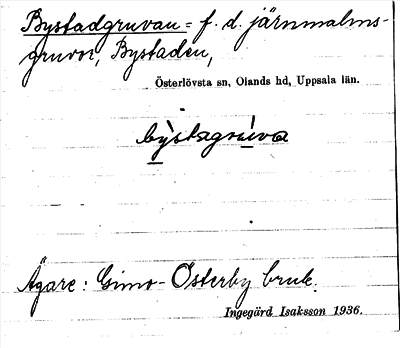 Bystadgruvan = f. d. järnmalms-
gruvor, Bystaden,
Österlövsta sn, Olands hd, Uppsala län.
bystagruva
Ägare: Gimo-Österby bruk.
Ingegärd Isaksson 1936.